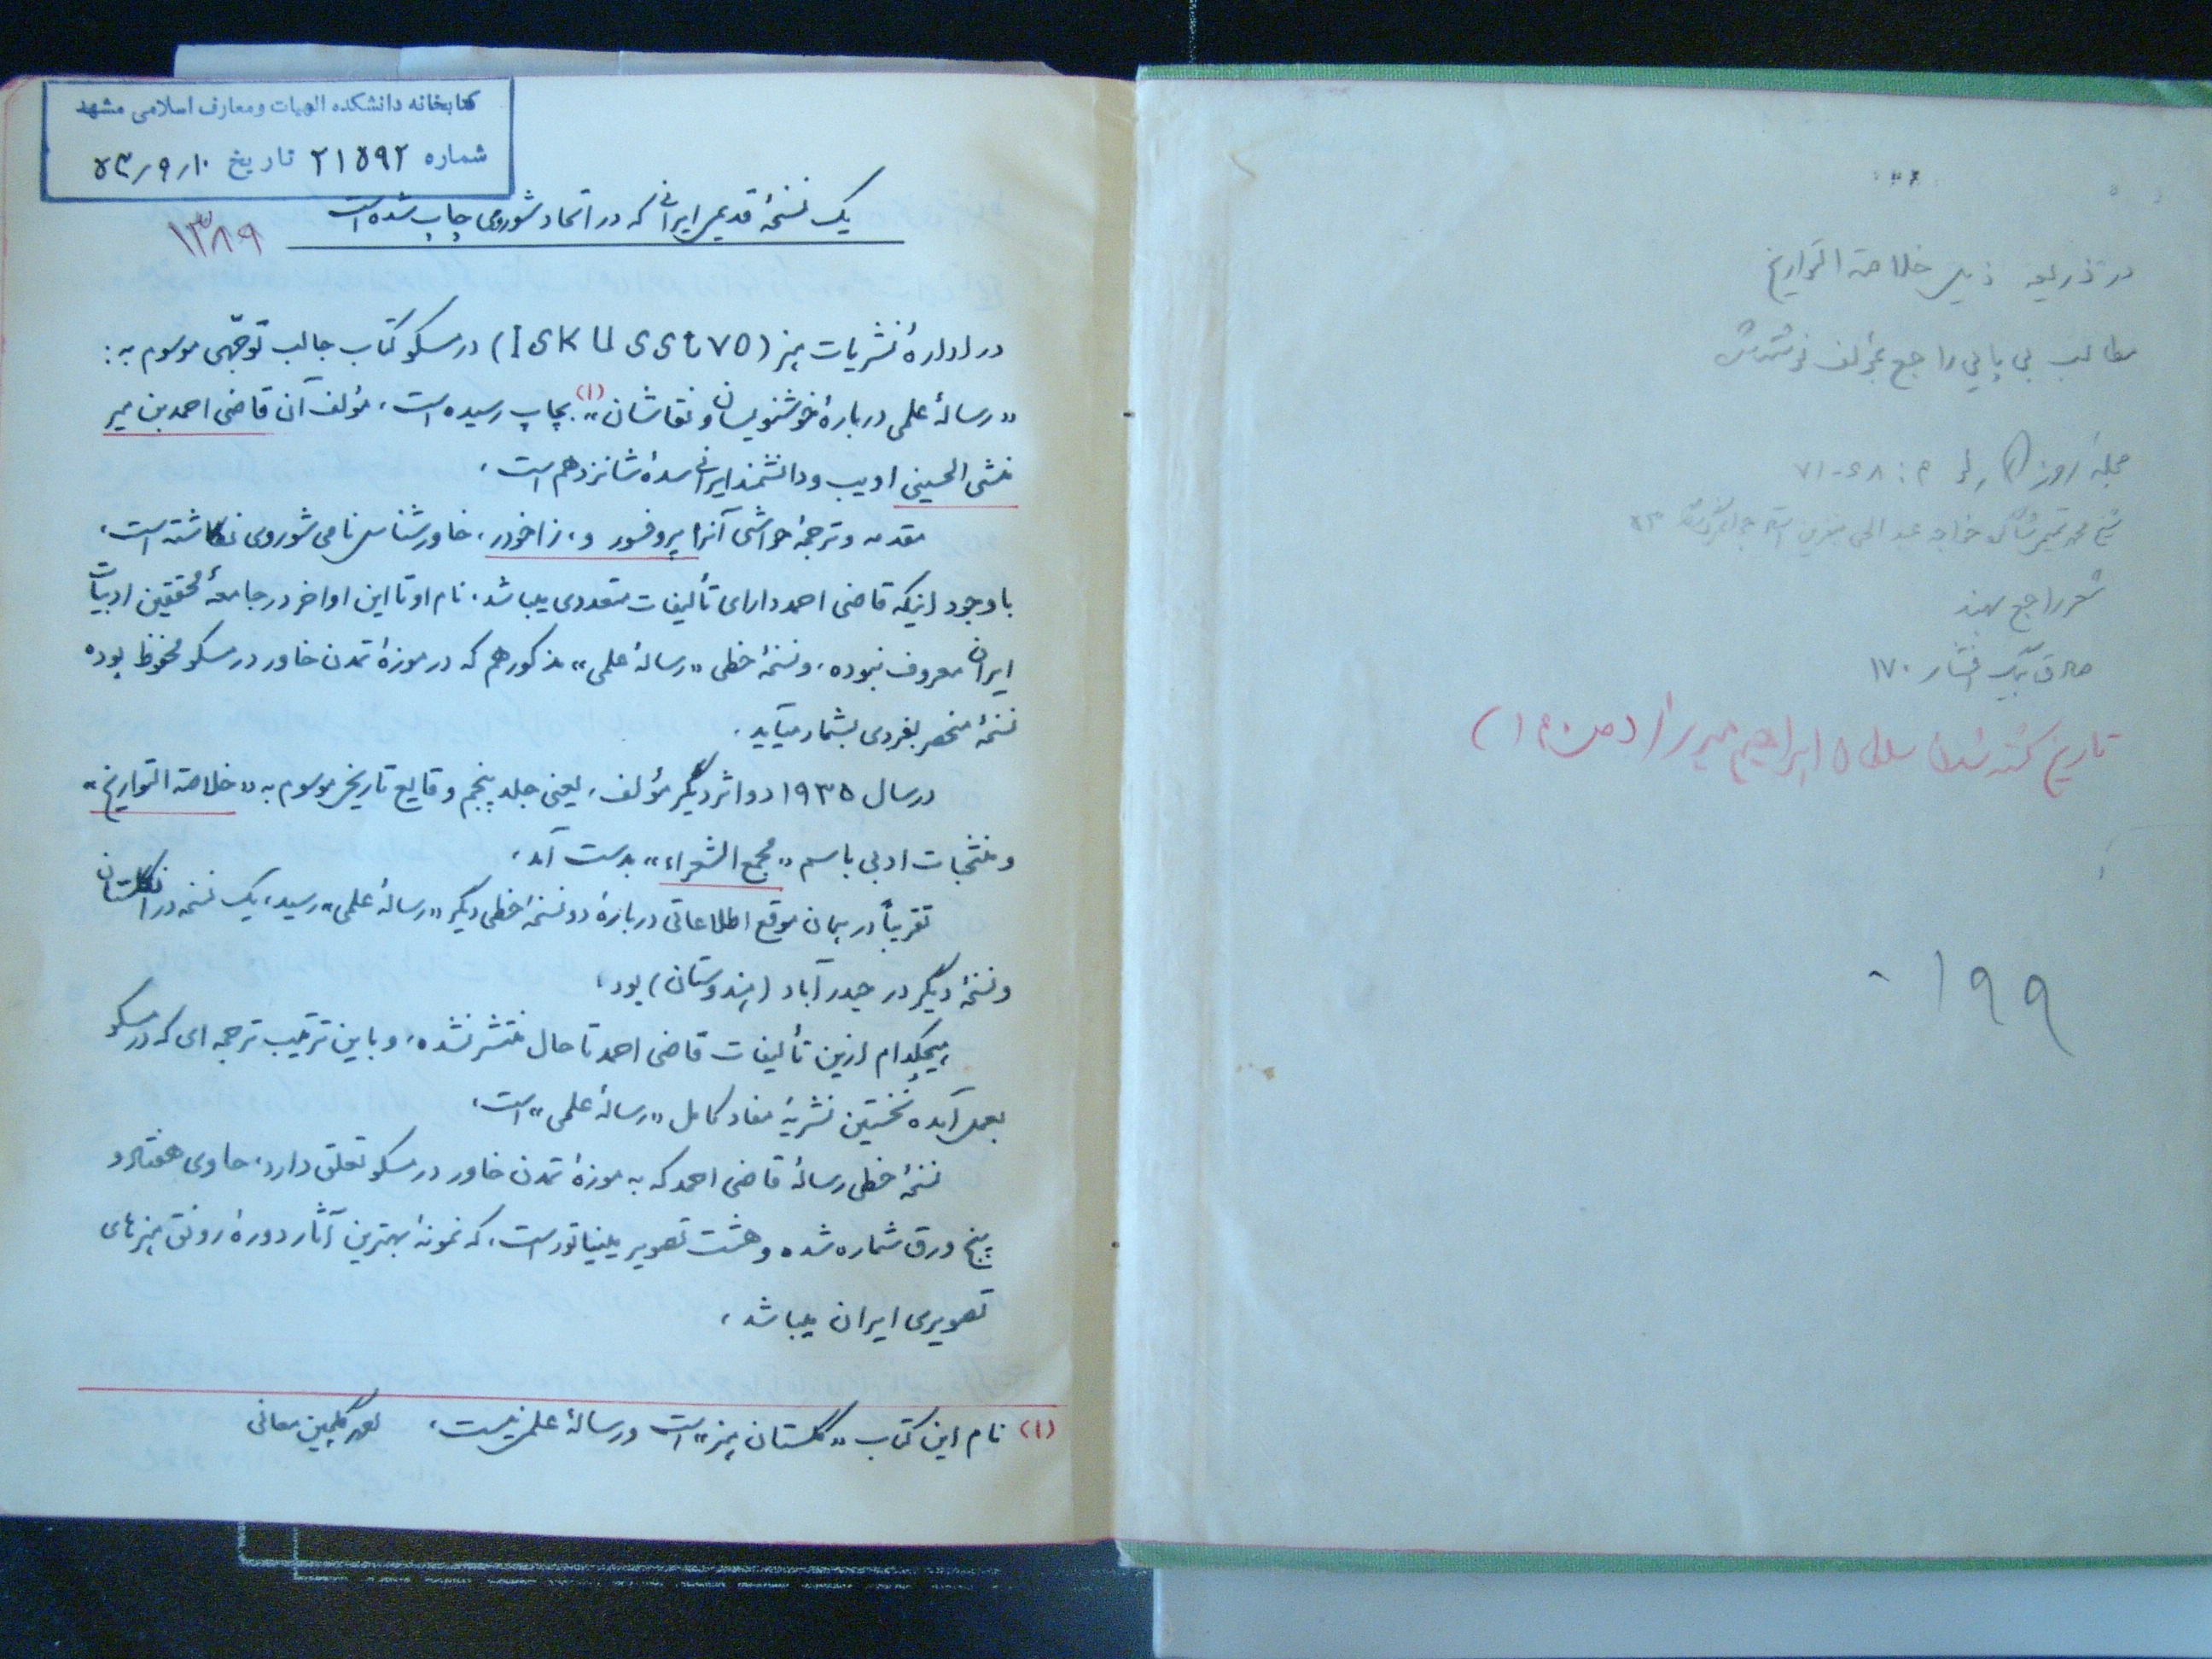 در ذریعه ذیل خلاصة التواریخ
مطالب بی پایی راجع بمؤلف نوشته
شعر راجع بهند
صادق بیگ افشار ۱۷۰
تاریخ کشته شدن سلطان ابراهیم میرزا
۱۹۹
کتابخانه دانشکده الهیات ومعارف اسلامی مشهد
شماره ۲۱۵۹۲ تاریخ ۵۳٫۹٫۱۰
یک نسخهٔ قدیمی ایرانی که در اتحاد شوروی چاپ شده است
۱۳۸۹
در ادارهٔ نشریات هنر (Iskusstvo) در مسکو کتاب جالب توجّهی موسوم به:
«رسالهٔ علمی دربارهٔ خوشنویسان و نقاشان»(۱) بچاپ رسیده است، مؤلف آن قاضی احمد بن میر
منشی الحسینی ادیب و دانشمند ایرانی سدهٔ شانزدهم است،
مقدمه و ترجمهٔ حواشی آنرا پروفسور و، زاخودر، خاورشناس نامی شوروی نگاشته است،
با وجود اینکه قاضی احمد دارای تألیفات متعددی میباشد، نام او تا این اواخر در جامعهٔ محققین ادبیات
ایران معروف نبوده، و نسخهٔ خطی «رسالهٔ علمی» مذکور هم که در موزهٔ تمدن خاور در مسکو محفوظ بوده
نسخهٔ منحصر بفردی بشمار میآید،
در سال ۱۹۳۵ دو اثر دیگر مؤلف، یعنی جلد پنجم وقایع تاریخی موسوم به «خلاصة التواریخ»
و منتخبات ادبی باسم «مجمع الشعراء» بدست آمد،
تقریباً در همان موقع اطلاعاتی دربارهٔ دو نسخهٔ خطی دیگر «رسالهٔ علمی» رسید، یک نسخه در انگلستان
و نسخهٔ دیگر در حیدرآباد (هندوستان) بود،
هیچکدام ازین تألیفات قاضی احمد تا حال منتشر نشده، و باین ترتیب ترجمه ای که در مسکو
بعمل آمده نخستین نشریهٔ مفاد کامل «رسالهٔ علمی» است،
نسخهٔ خطی رسالهٔ قاضی احمد که به موزهٔ تمدن خاور در مسکو تعلق دارد، حاوی هفتاد و
پنج ورق شماره شده و هشت تصویر مینیاتور است، که نمونهٔ بهترین آثار دورهٔ رونق هنرهای
تصویری ایران میباشد،
(۱) نام این کتاب «گلستان هنر» است و رسالهٔ علمی نیست، احمد گلچین معانی